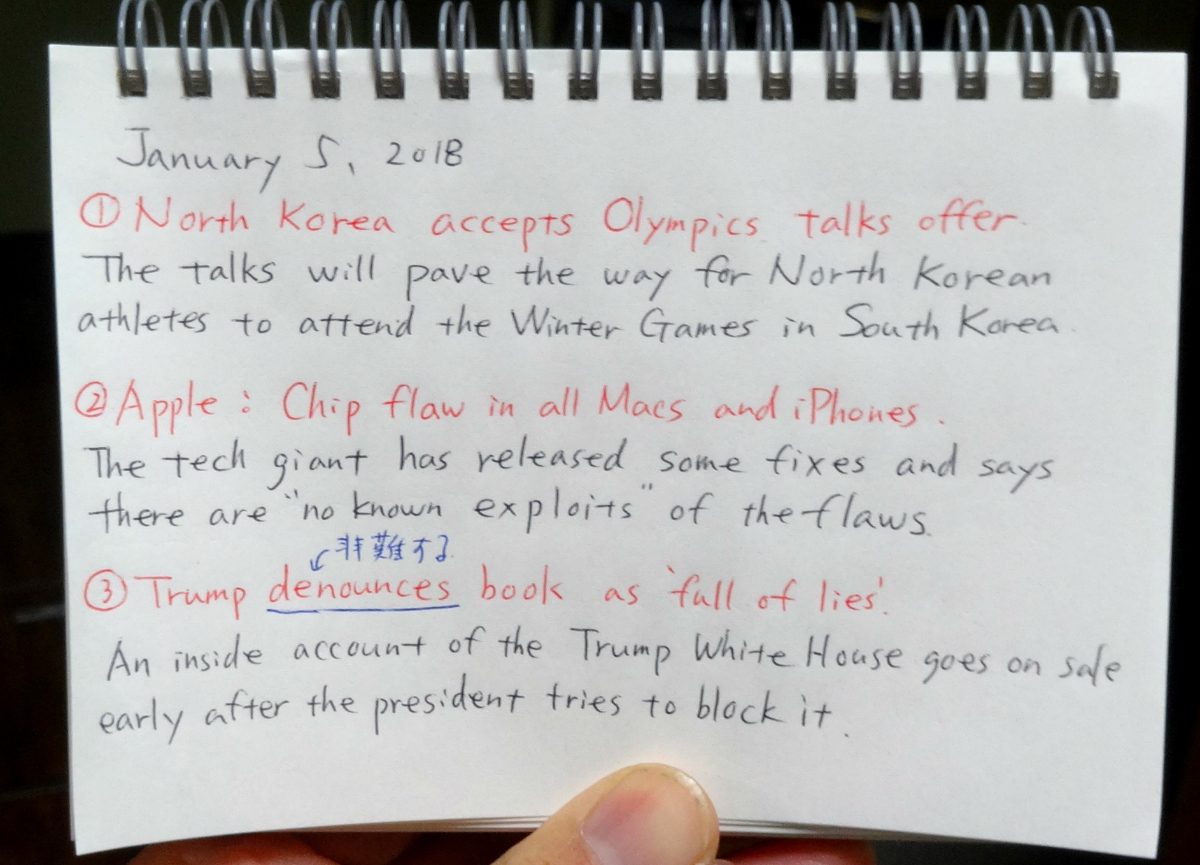 January 5, 2018
① North Korea accepts Olympics talks offer.
The talks will pave the way for North Korean
athletes to attend the Winter Games in South Korea.
② Apple: Chip flaw in all Macs and iPhones.
The tech giant has released some fixes and says
there are "no known exploits" of the flaws.
非難する
③ Trump denounces book as 'full of lies'.
An inside account of the Trump White House goes on sale
early after the president tries to block it.